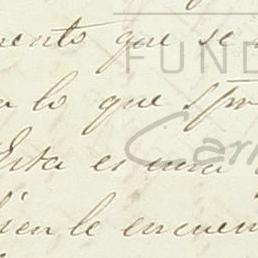 mento que se
FUND
a lo que
Esta es una
Car
bien le encuen